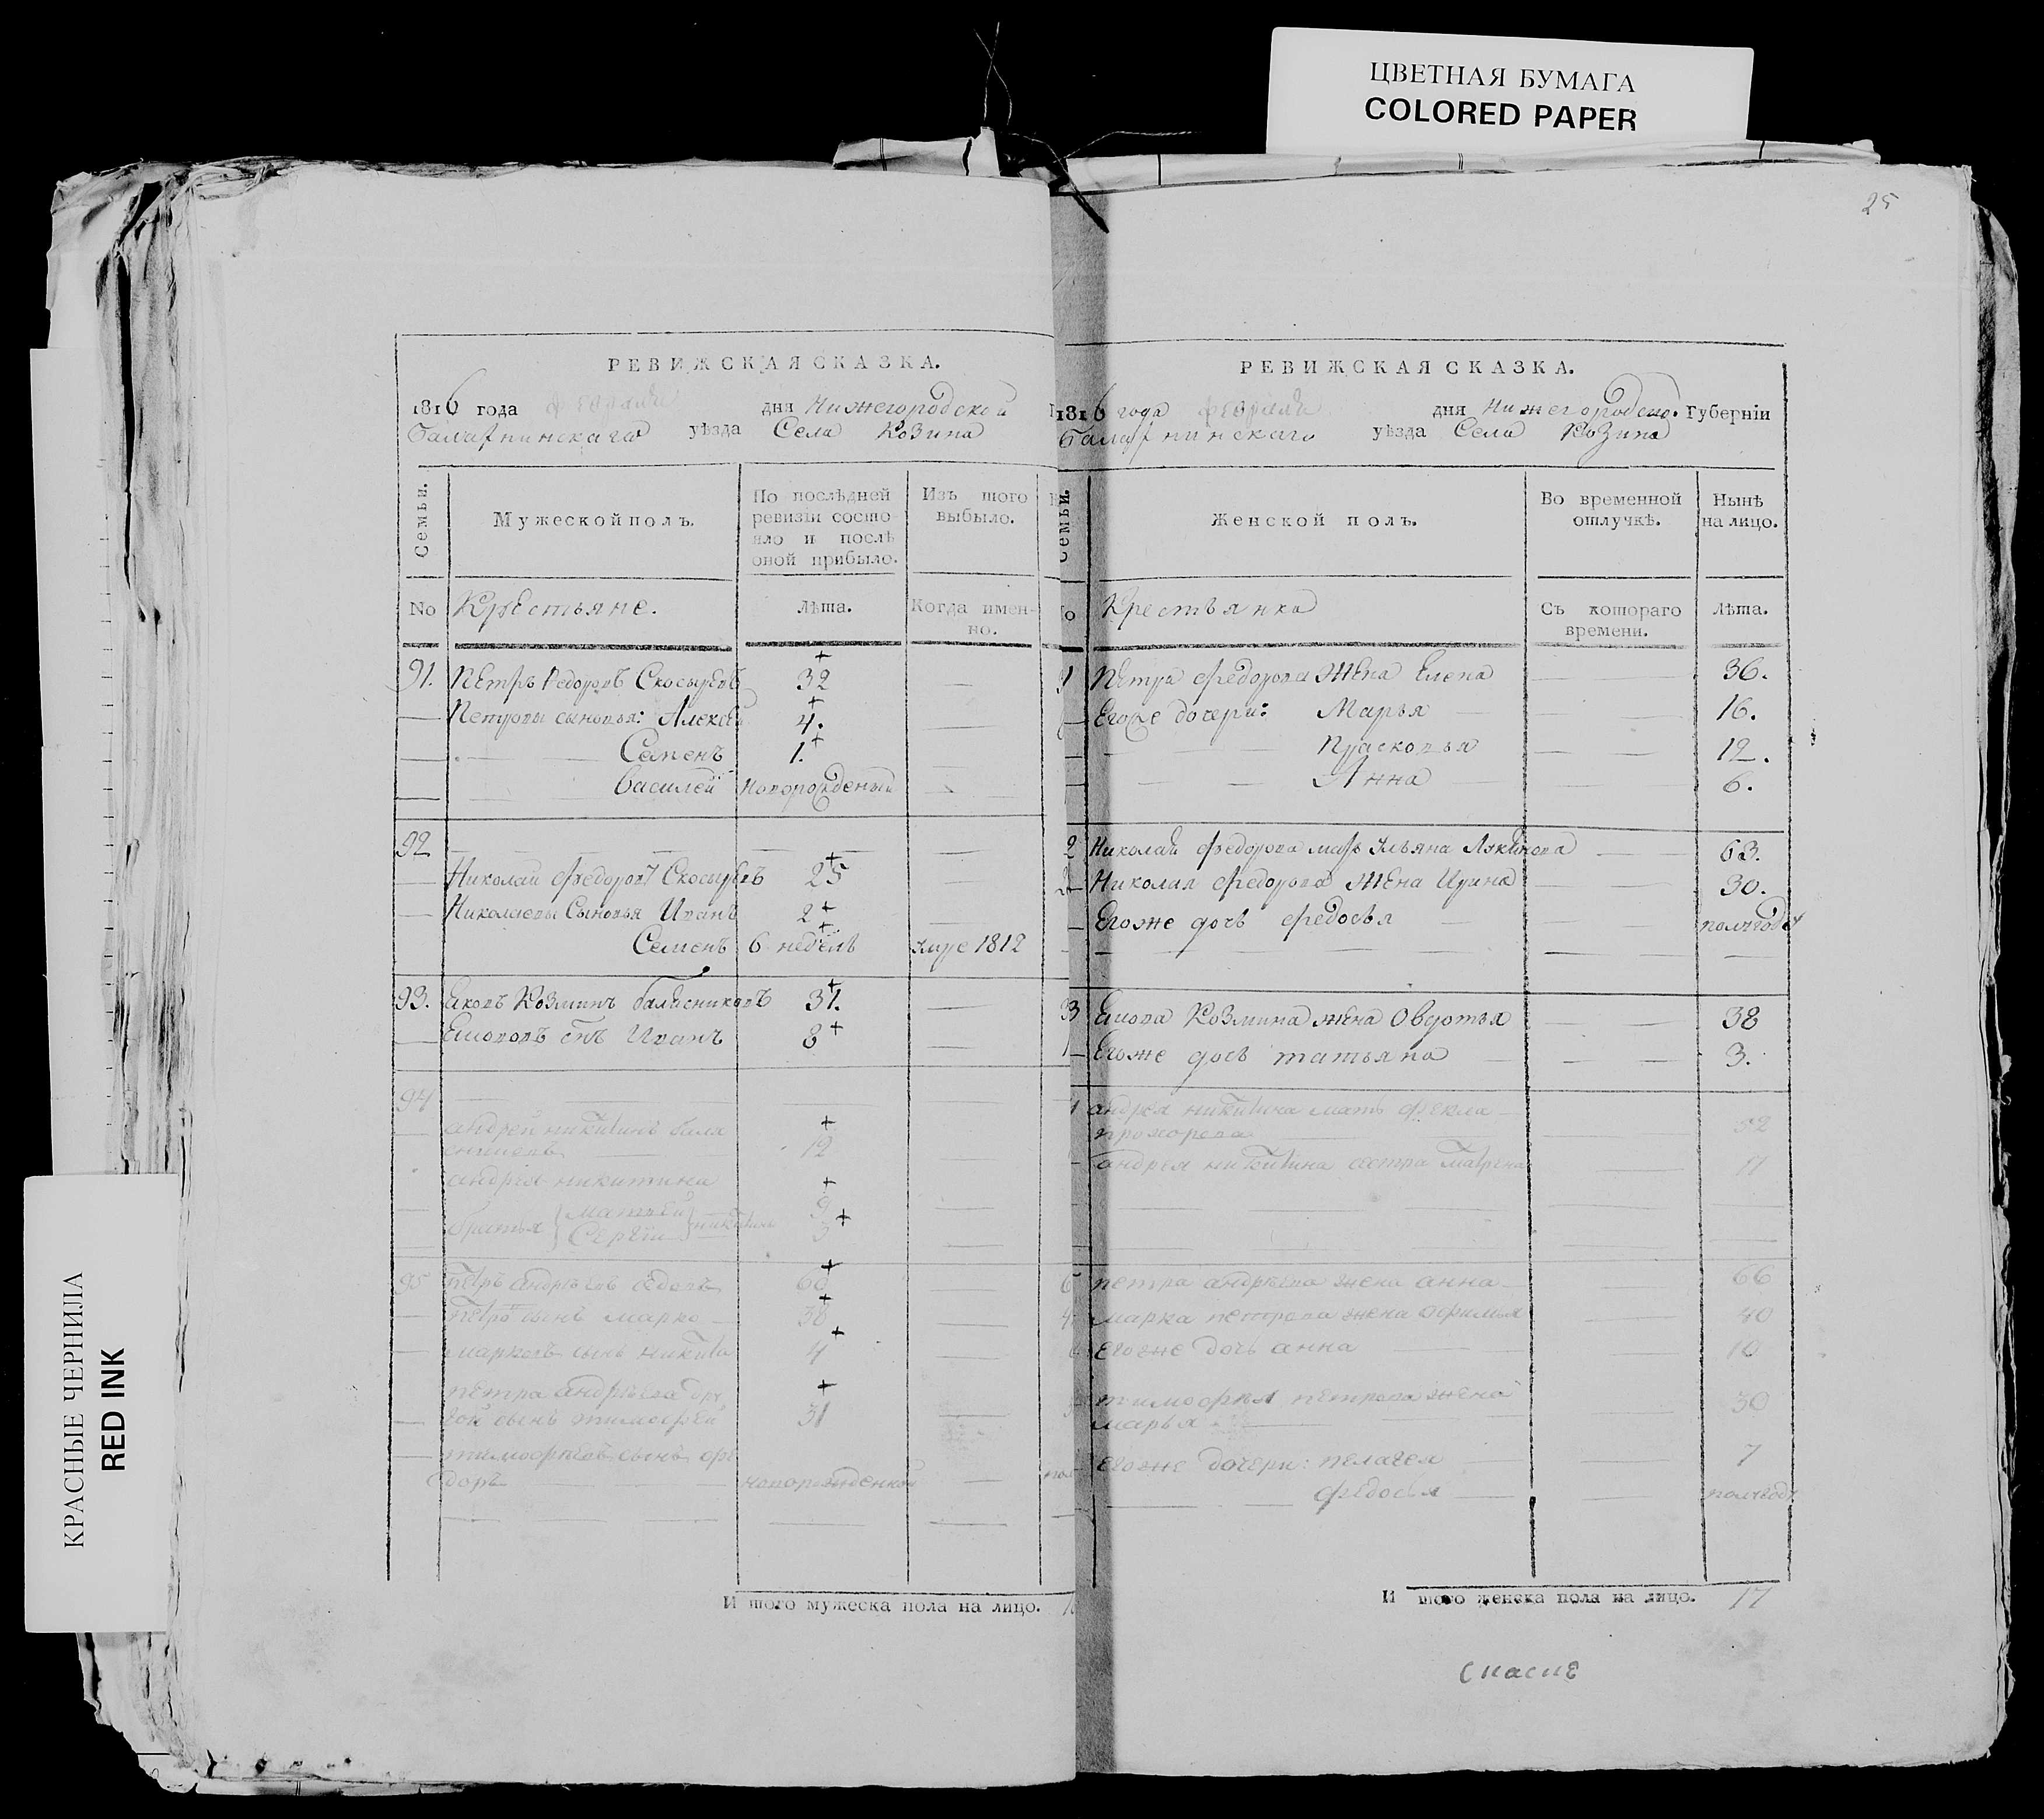 ЦВЕТНАЯ БУМАГА
COLORED PAPER
25
РЕВИЖСКАЯ СКАЗКА.
1816 года февраля дня Нижегородской
балахнинскаго уѣзда Села Козина
Семьи.
Мужеской полъ.
По послѣдней
ревизіи состо-
яло и послѣ
оной прибыло.
Изъ того
выбыло.
No
Крестьяне.
Лѣта.
Когда имен-
но.
91. Петръ Федоровъ Скосыревъ 32
Петровы сыновья: Алексей 4.
Семенъ 1.
Василей новорожденный
92
Николай Федоровъ Скосыревъ 25
Николаевы Сыновья Иванъ 2
Семенъ 6 недель 1812
93. Козминъ 37.
Иванъ 8
94
андрей никитинъ
12
андрея никитина
братья матвей 9
Сергей 3
95 петръ андреевъ
петровъ сынъ марко 38
марковъ сынъ никита 4
петра андреева дру
гой сынъ тимофей 31
тимофеевъ сынъ фе
доръ новорожденной
И того мужеска пола на лицо.
РЕВИЖСКАЯ СКАЗКА.
1816 года февраля дня Нижегородской Губерніи
балахнинскаго уѣзда Села Козина
Семьи.
Женской полъ.
Во временной
отлучкѣ.
Нынѣ
на лицо.
Крестьянка
Съ котораго
времени.
Лѣта.
Петра федорова жена Елена 36.
Егоже дочери: Марья 16.
Прасковья 12.
Анна 6.
Николая федорова мать Ульяна 63.
Николая федорова жена Ирина 30.
Егоже дочь федосья полугоду
Козмина жена Овдотья 38
Егоже дочь татьяна 3.
андрея никитина мать фекла
прохорова 52
андрея никитина сестра матрена 17
петра андреева жена анна 66
марка петрова жена офимья 40
егоже дочь анна 10
тимофея петрова жена
марья 30
егоже дочери: пелагея 7
федосья полугоду
И того женска пола на лицо. 17
КРАСНЫЕ ЧЕРНИЛА
RED INK